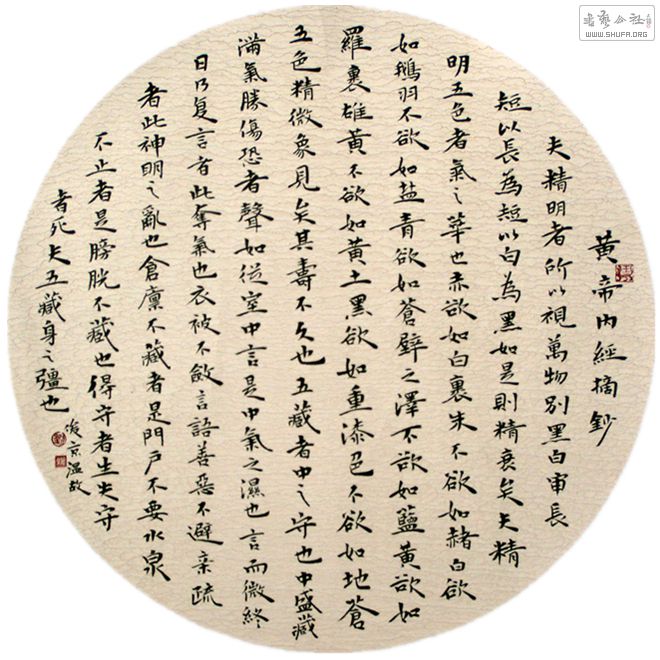 黃帝內經摘鈔
夫精明者所以視萬物別黑白审長
短以長為短以白為黑如是則精衰矣夫精
明五色者氣之華也赤欲如白裹朱不欲如赭白欲
如鵝羽不欲如盐青欲如蒼璧之澤不欲如藍黃欲如
羅裹雄黃不欲如黃土黑欲如重漆色不欲如地蒼
五色精微象見矣其壽不久也五藏者中之守也中盛藏
滿氣勝傷恐者聲如從室中言是中氣之濕也言而微終
日乃复言者此奪氣也衣被不斂言語善惡不避亲疏
者此神明之亂也倉廩不藏者是門戶不要水泉
不止者是膀胱不藏也得守者生失守
者死夫五藏身之彊也
俊京溫故
書藝公社
WWW.SHUFA.ORG